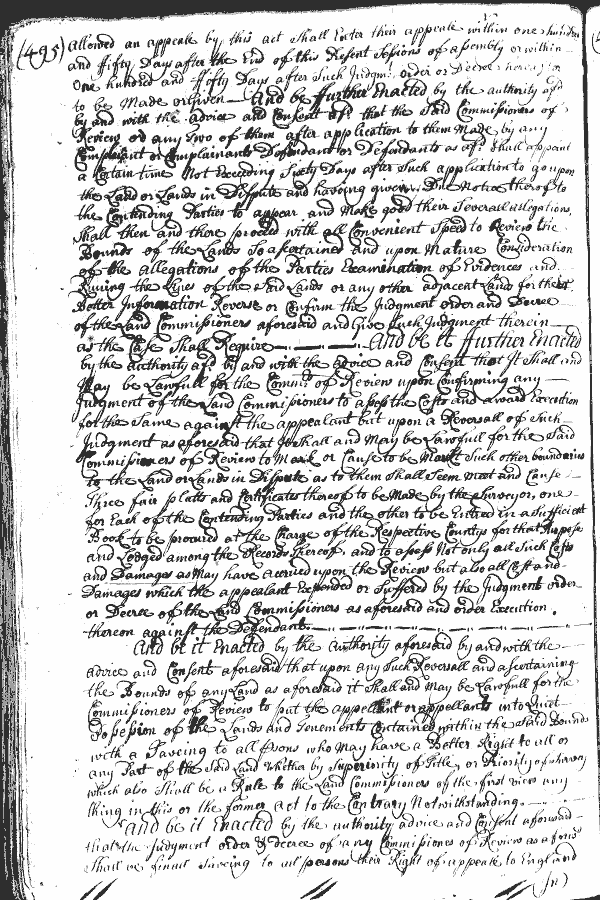 (495) allowed an appeale by this act Shall Enter their appeale within one hundred
and ffifty Days after the End of this Present Sessions of assembly or within
One hundred and ffifty Days after Such Judgmt. order or Decree hereafter
to be Made or Given — And be ffurther Enacted by the authority afsd
by and with the advice and Consent afsd that the Said Commissioners of
Review or any Two of them after application to them Made by any
Complainant or Complainants Defendant or Defendants as afsd shall appoint
a Certain time Not Exceeding Sixty Days after Such application to go upon
the Land or Lands in Dispute and haveing given Due Notice thereof to
the Contending Parties to appear and Make good their Severall allegations,
Shall then and there proceed with all Convenient Speed to Review the
Bounds of the Lands So ascertained and upon Mature Consideration
of the allegations of the Parties Examination of Evidences and
Runing the Lines of the Said Lands or any other adjacent Land for their
Better Information Reverse or Confirm the Judgment order and Decree
of the Land Commissioners aforesaid and Give Such Judgment therein
as the Case Shall Require — And be it ffurther Enacted
by the authority afsd by and with the advice and Consent that It Shall and
May be Lawfull for the Commrs. of Review upon Confirming any
Judgment of the Land Commissioners to assess the Costs and award Execution
for the Same against the appealant but upon a Reversall of Such
Judgment as aforesaid that It Shall and May be Lawfull for the Said
Commissioners of Review to Mark or Cause to be Markt Such other boundaries
to the Land or Lands in Dispute as to them Shall Seem Meet and Cause
Three fair platts and Certificates thereof to be Made by the Surveyor, one
for Each of the Contending Parties and the other to be Entred in a Sufficient
Book to be procured at the Charge of the Respective Countys for that Purpose
and Lodged among the Records thereof, and to assess Not only all Such Costs
and Damages as May have accrued upon the Review but also all Cost and
Damages which the appealant Expended or Suffered by the Judgment order
or Decree of the Land Commissioners as aforesaid and order Execution.
thereon against the Defendants. —
And be it Enacted by the Authority aforesaid by and with the
advice and Consent aforesaid that upon any Such Reversall and ascertaining
the Bounds of any Land as aforesaid it Shall and May be Lawfull for the
Commissioners of Review to put the appellant or appellants into Quiet
Possession of the Lands and Tenements Contained within the Said Bounds
with a Saveing to all Persons who May have a Better Right to all or
any Part of the Said Land Whether by Superiority of Title, or Priority of Survey
which also Shall be a Rule to the Land Commissioners of the first view any
thing in this or the former act to the Contrary Notwithstanding.
And be it Enacted by the authority advice and Consent aforesaid
that the Judgment order & decree of any Commissioners of Review as aforesd
Shall be finall Saveing to all persons their Right of appeale to England
(In)